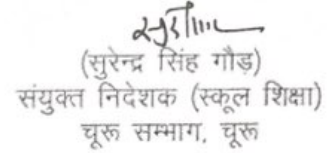 (सुरेन्द्र सिंह गौड़)
संयुक्त निदेशक (स्कूल शिक्षा)
चूरू सम्भाग, चूरू